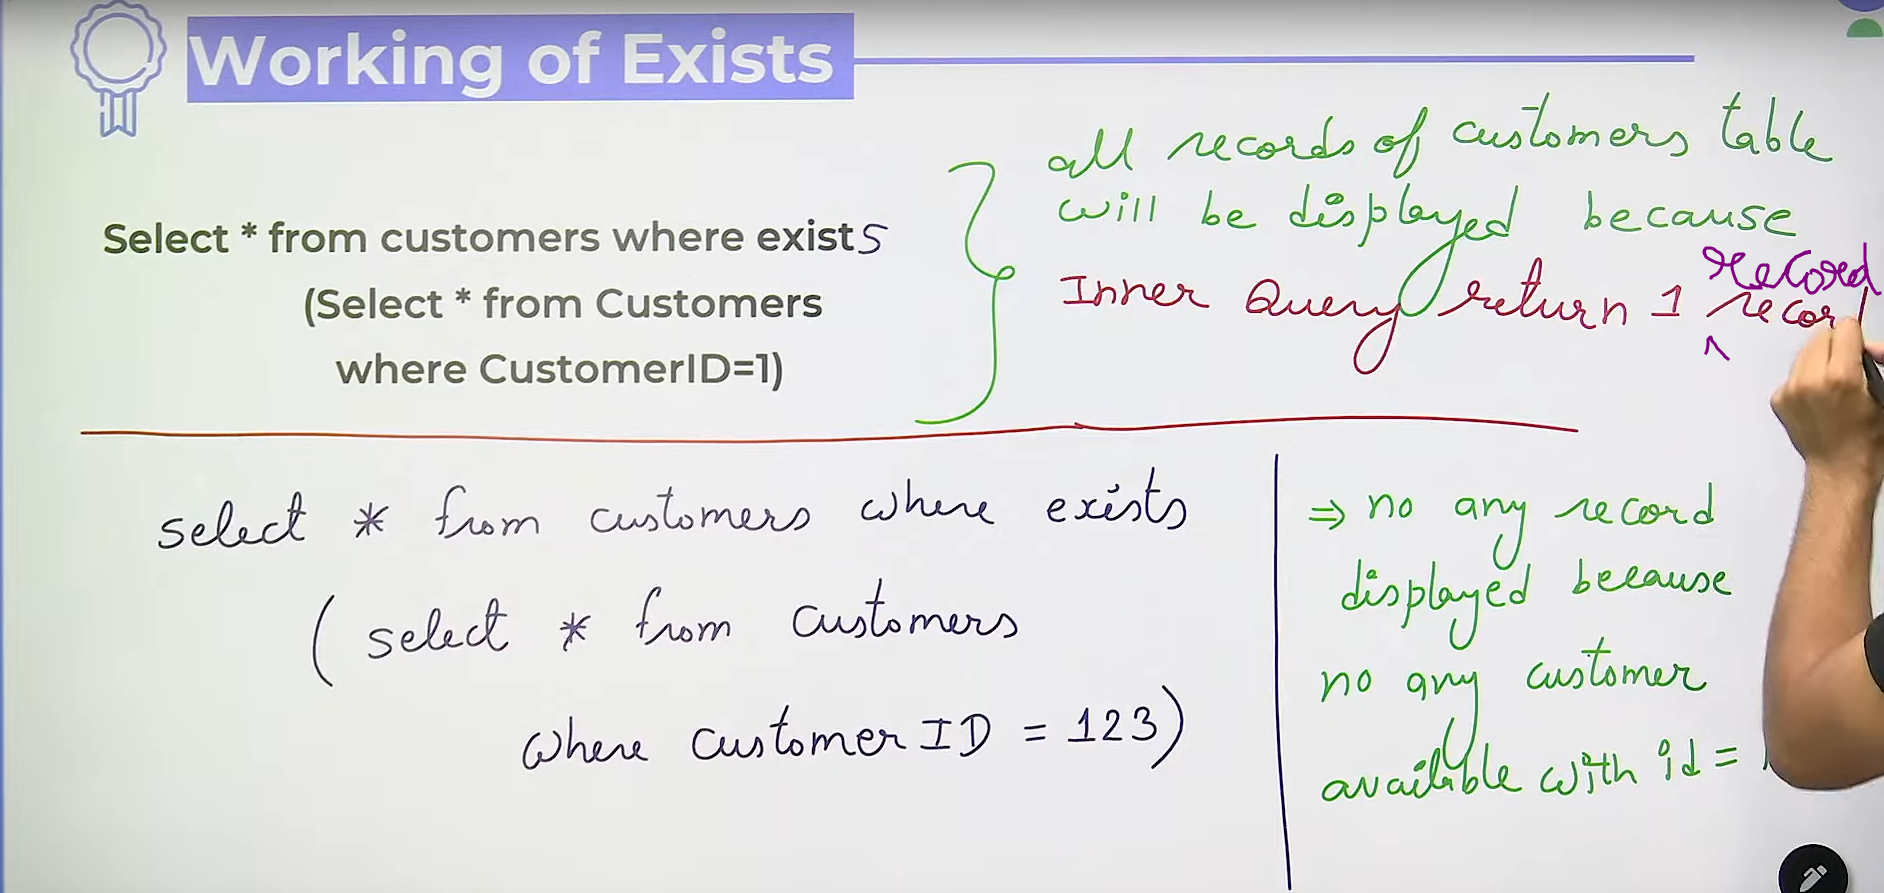 Working of Exists
Select * from customers where exists
(Select * from Customers
where CustomerID=1)
all records of customers table
will be displayed because
record
Inner Query return 1 recor
^
select * from customers where exists
( select * from customers
where customer ID = 123)
⇒ no any record
displayed because
no any customer
available with id =